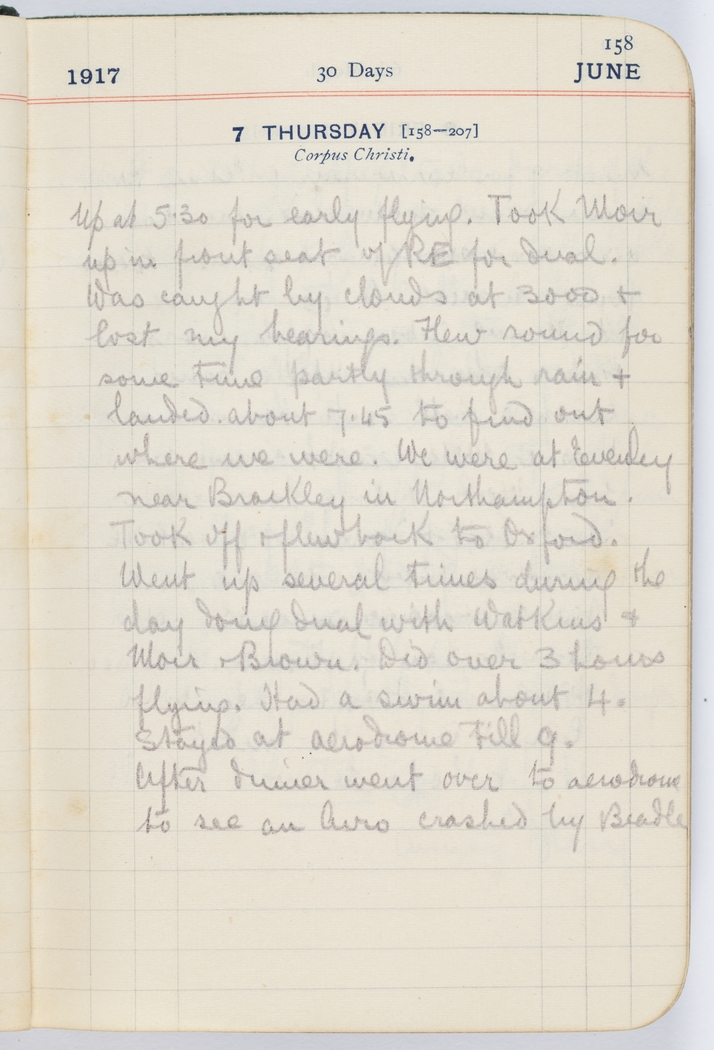 158
1917 30 Days JUNE
7 THURSDAY [158—207]
Corpus Christi.
Up at 5.30 for early flying. Took Moir
up in front seat of RE for dual.
Was caught by clouds at 3000 +
lost my bearings. Flew round for
some time partly through rain +
landed about 7.45 to find out
where we were. We were at Evenley
near Brackley in Northampton.
Took off + flew back to Oxford.
Went up several times during the
day doing dual with Watkins +
Moir + Brown. Did over 3 hours
flying. Had a swim about 4.
Stayed at aerodrome till 9.
After dinner went over to aerodrome
to see an Avro crashed by Beadle